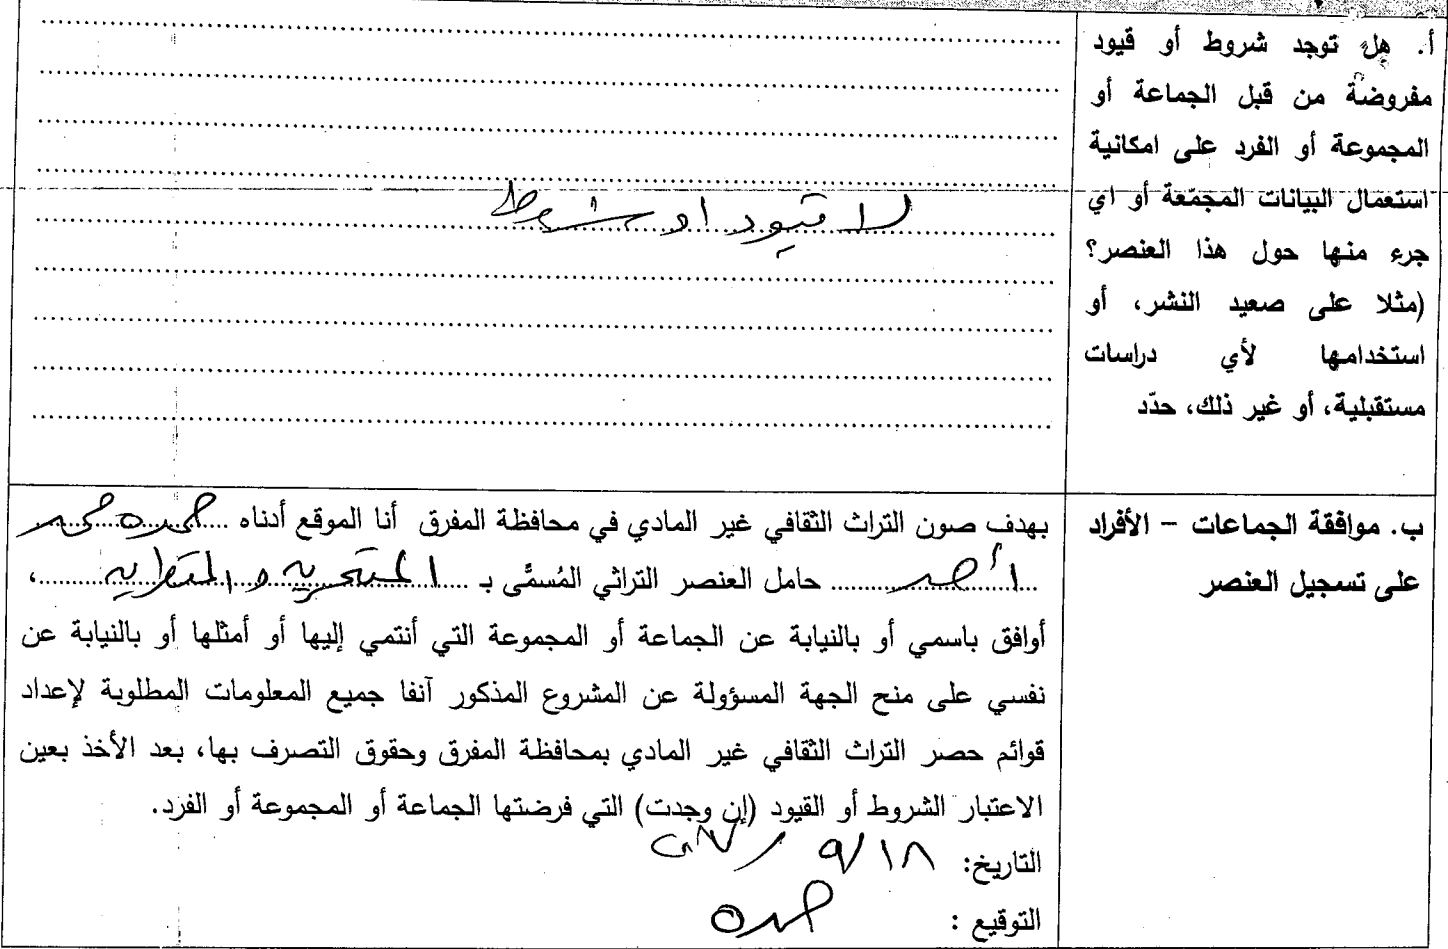 أ. هل توجد شروط أو قيود
مفروضة من قبل الجماعة أو
المجموعة أو الفرد على امكانية
استعمال البيانات المجمّعة أو اي
جرء منها حول هذا العنصر؟
(مثلا على صعيد النشر، أو
استخدامها لأي دراسات
مستقبلية، أو غير ذلك، حدّد
لا قيود او شروط
ب. موافقة الجماعات - الأفراد
على تسجيل العنصر
بهدف صون التراث الثقافي غير المادي في محافظة المفرق أنا الموقع أدناه حمده محمد
حامل العنصر التراثي المُسمَّى بـ ،
أوافق باسمي أو بالنيابة عن الجماعة أو المجموعة التي أنتمي إليها أو أمثلها أو بالنيابة عن
نفسي على منح الجهة المسؤولة عن المشروع المذكور آنفا جميع المعلومات المطلوبة لإعداد
قوائم حصر التراث الثقافي غير المادي بمحافظة المفرق وحقوق التصرف بها، بعد الأخذ بعين
الاعتبار الشروط أو القيود (إن وجدت) التي فرضتها الجماعة أو المجموعة أو الفرد.
التاريخ: ١٨/٩
التوقيع : حمده